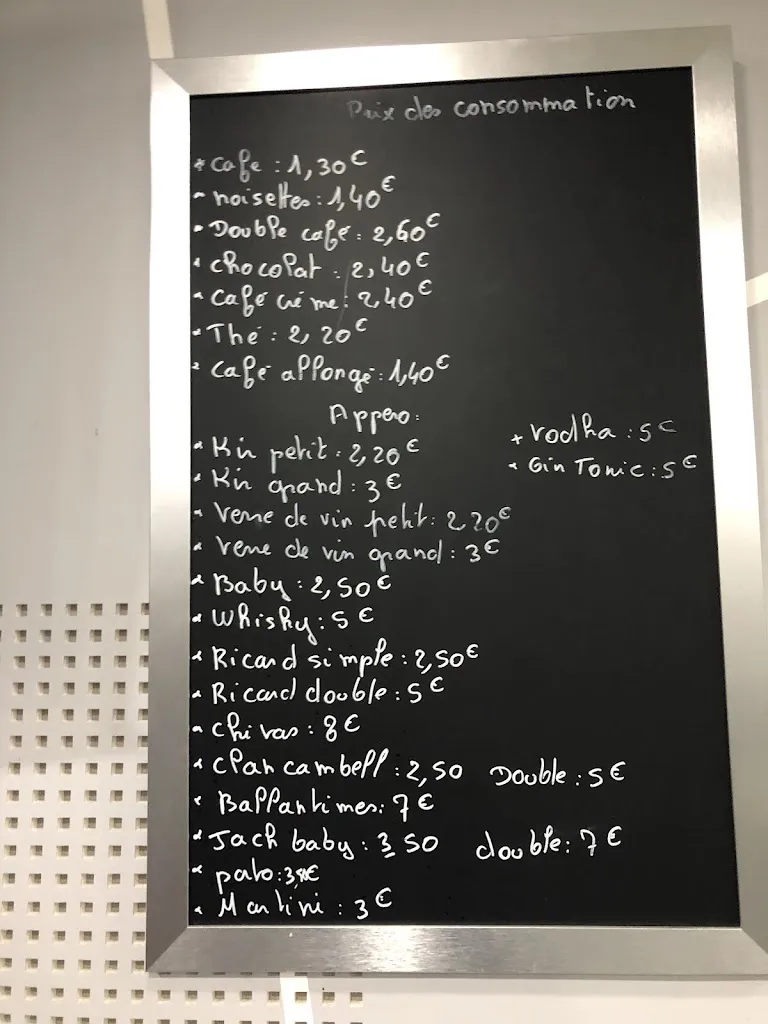 Prix des consommation
* Cafe : 1,30€
- noisettes : 1,40€
- Double café : 2,60€
* chocolat : 2,40€
* Café crème : 2,40€
* Thé : 2,20€
* Café allongé : 1,40€
Appero :
* Kir petit : 2,20€
* Kir grand : 3€
+ Vodka : 5€
* Gin Tonic : 5€
* Verre de vin petit : 2,20€
* Verre de vin grand : 3€
* Baby : 2,50€
* Whisky : 5€
* Ricard simple : 2,50€
* Ricard double : 5€
- Chivas : 8€
* Clan cambell : 2,50 Double : 5€
* Ballantimes : 7€
* Jack baby : 3,50 double : 7€
* Martini : 3€